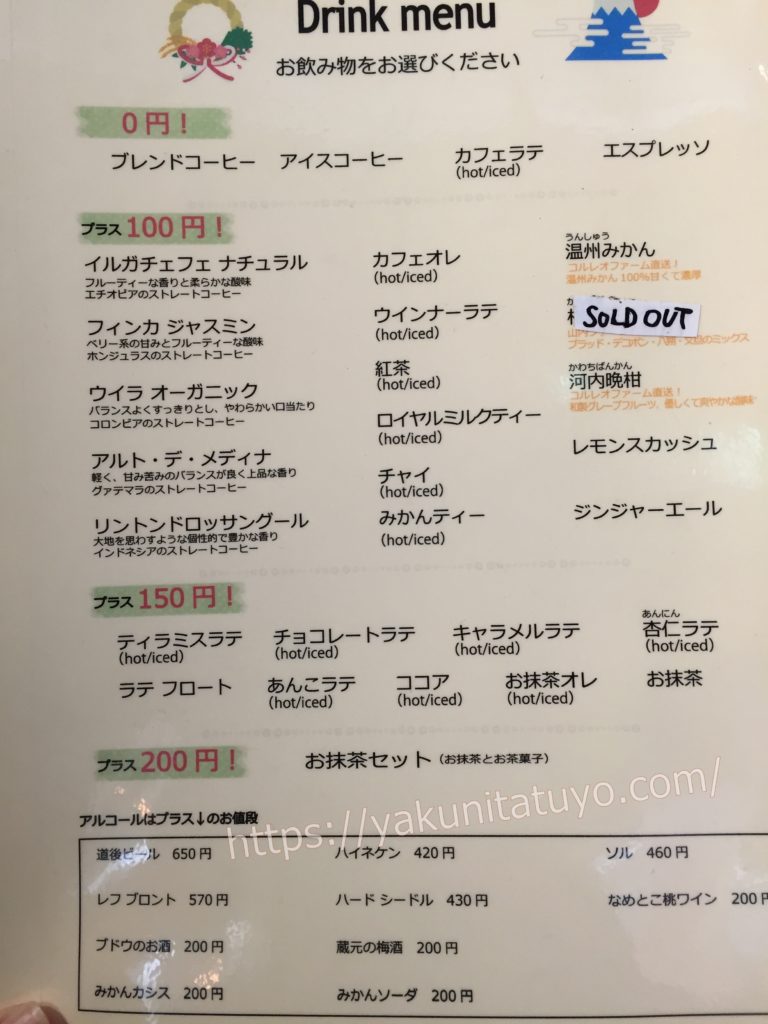 Drink menu
お飲み物をお選びください
0円！
ブレンドコーヒー アイスコーヒー カフェラテ エスプレッソ
(hot/iced)
プラス 100円！
イルガチェフェ ナチュラル
フルーティーな香りと柔らかな酸味
エチオピアのストレートコーヒー
フィンカ ジャスミン
ベリー系の甘みとフルーティーな酸味
ホンジュラスのストレートコーヒー
ウイラ オーガニック
バランスよくすっきりとし、やわらかい口当たり
コロンビアのストレートコーヒー
アルト・デ・メディナ
軽く、甘み苦みのバランスが良く上品な香り
グァテマラのストレートコーヒー
リントンドロッサングール
大地を思わすような個性的で豊かな香り
インドネシアのストレートコーヒー
カフェオレ
(hot/iced)
ウインナーラテ
(hot/iced)
紅茶
(hot/iced)
ロイヤルミルクティー
(hot/iced)
チャイ
(hot/iced)
みかんティー
(hot/iced)
うんしゅう
温州みかん
コルレオファーム直送！
温州みかん 100%甘くて濃厚
SOLD OUT
ブラッド・デコポン・八朔・文旦のミックス
かわちばんかん
河内晩柑
コルレオファーム直送！
和製グレープフルーツ、優しくて爽やかな酸味
レモンスカッシュ
ジンジャーエール
プラス 150円！
あんにん
ティラミスラテ チョコレートラテ キャラメルラテ 杏仁ラテ
(hot/iced) (hot/iced) (hot/iced) (hot/iced)
ラテ フロート あんこラテ ココア お抹茶オレ お抹茶
(hot/iced) (hot/iced) (hot/iced)
プラス 200円！ お抹茶セット（お抹茶とお茶菓子）
アルコールはプラス↓のお値段
https://yakunitatuyo.com/
道後ビール 650円 ハイネケン 420円 ソル 460円
レフ ブロント 570円 ハード シードル 430円 なめとこ桃ワイン 200円
ブドウのお酒 200円 蔵元の梅酒 200円
みかんカシス 200円 みかんソーダ 200円